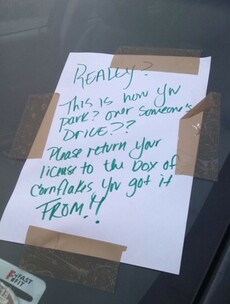 REALLY?
This is how you
park? over someone's
DRIVE??
Please return your
license to the box of
Cornflakes you got it
FROM!!
FAST
FIT